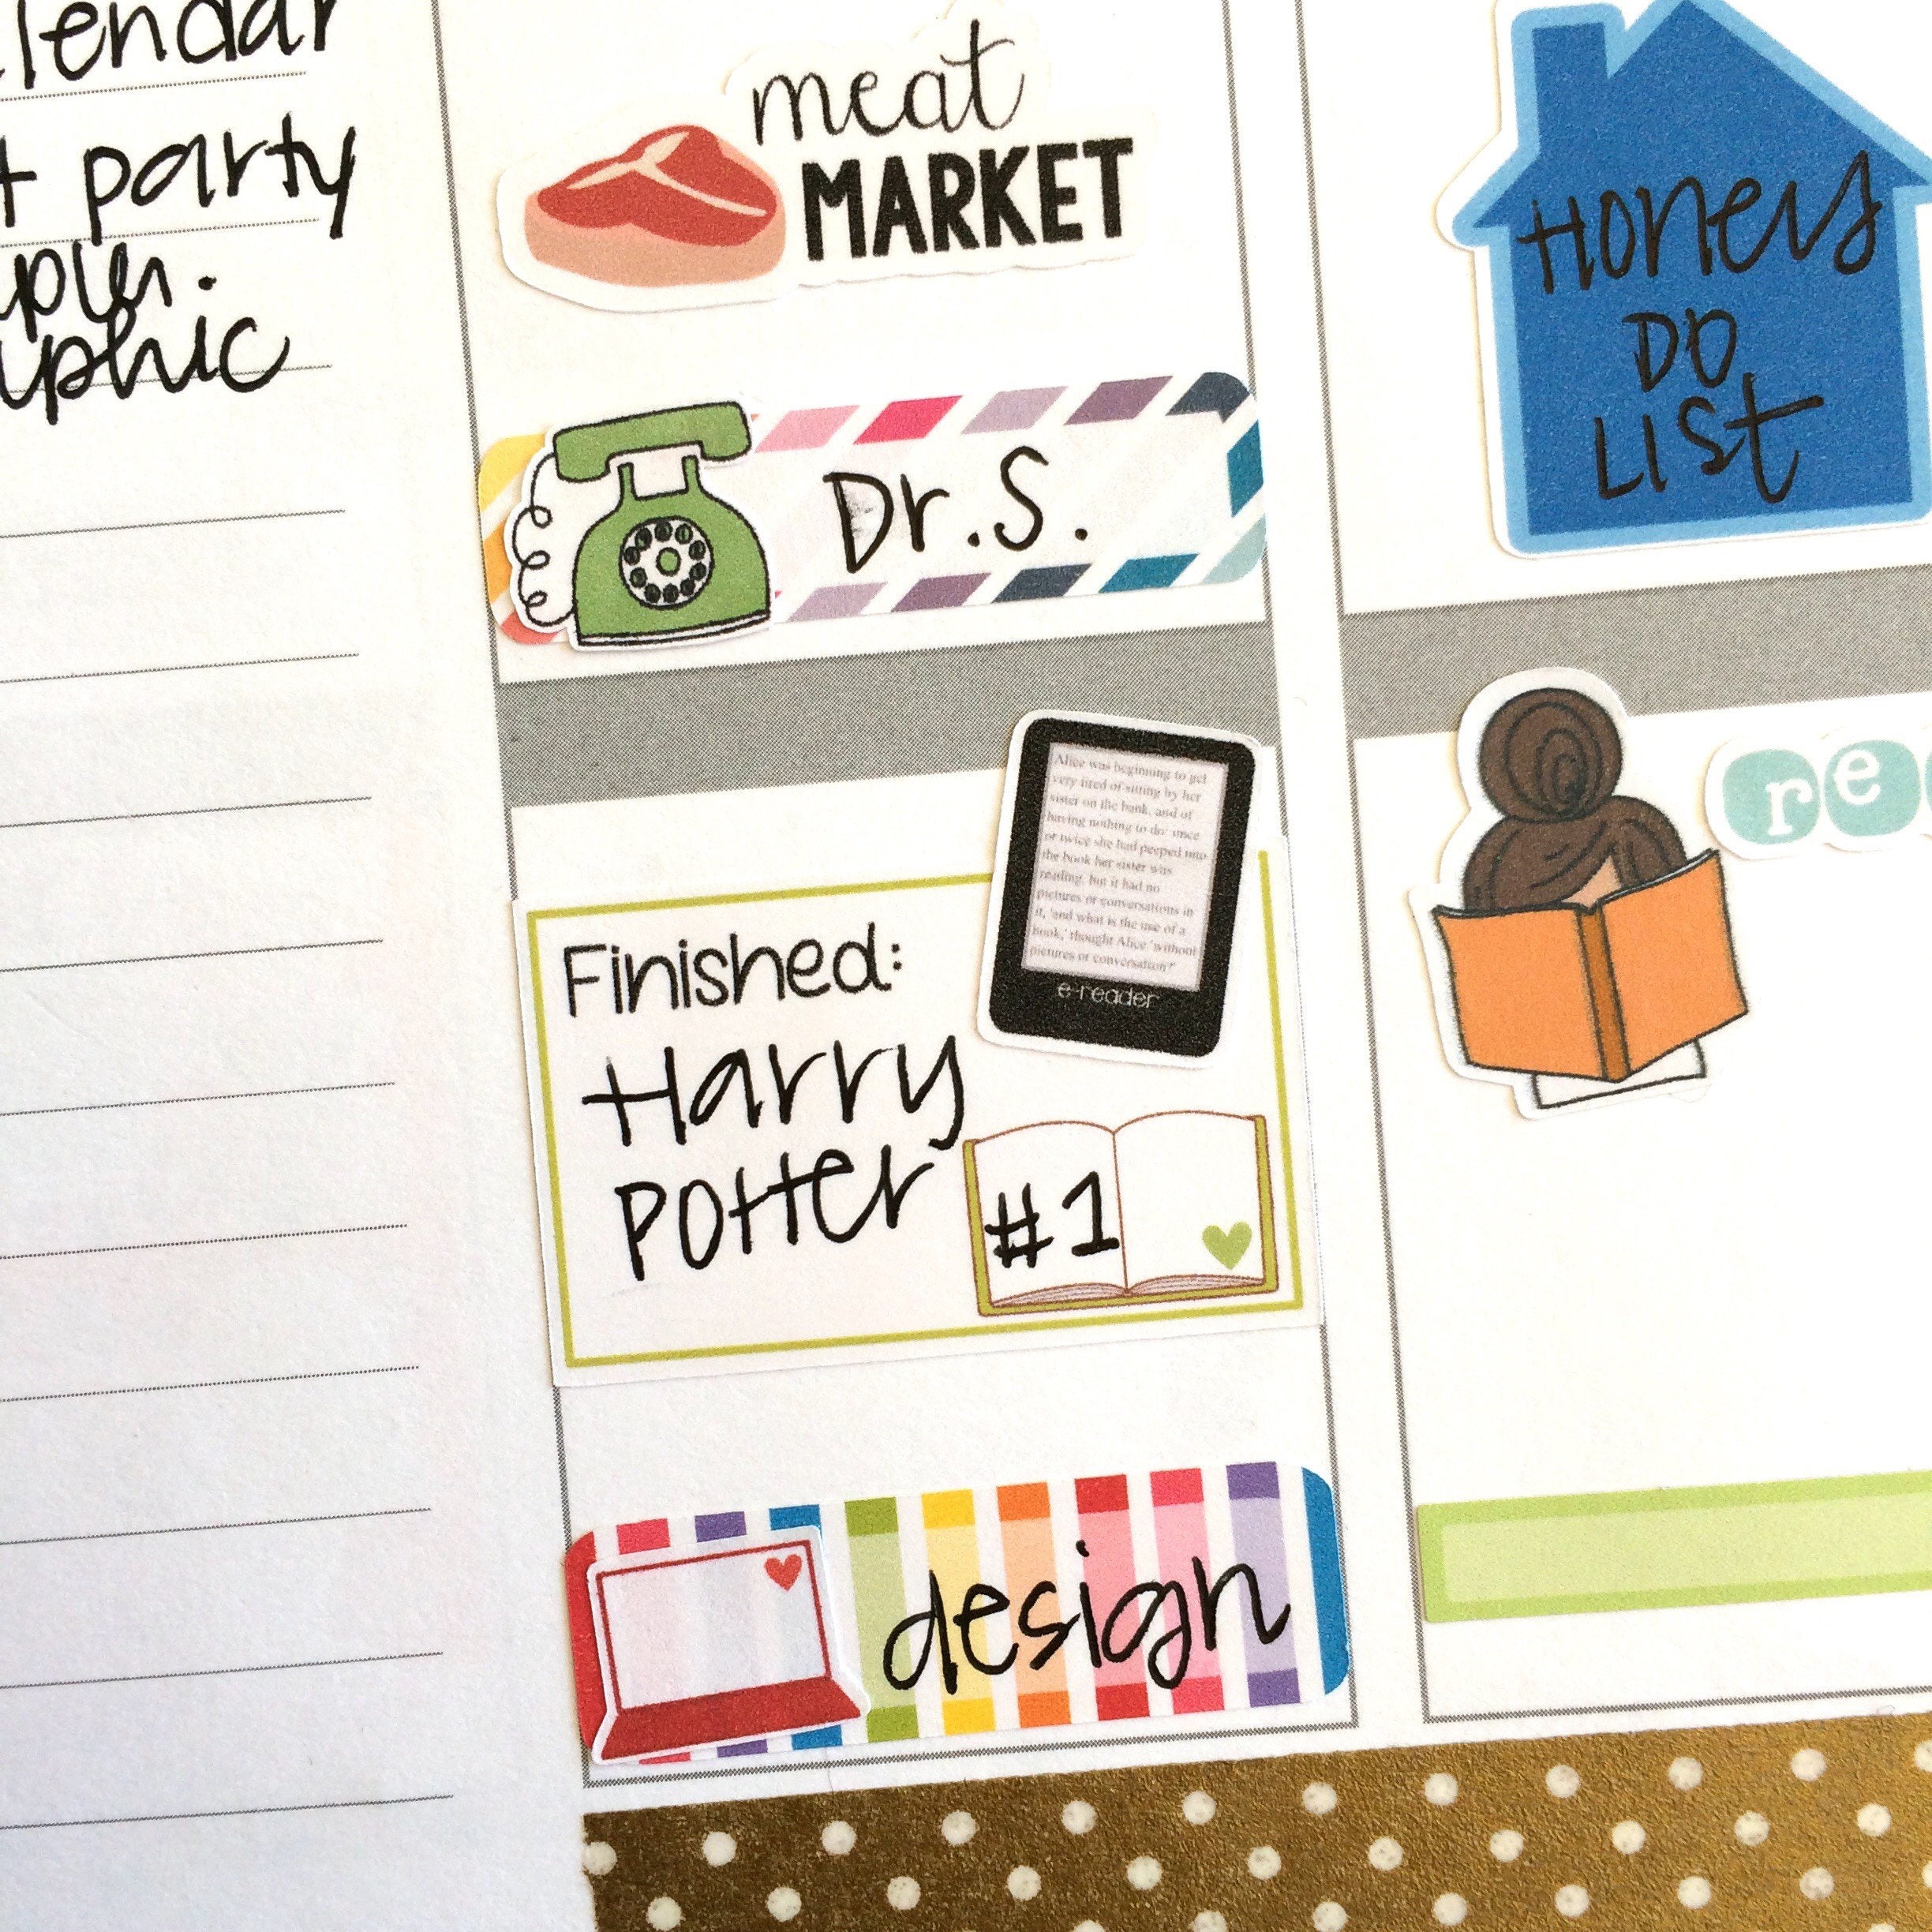 party
meat
MARKET
Dr.S.
Alice was beginning to get
very tired of sitting by her
sister on the bank, and of
having nothing to do: once
or twice she had peeped into
the book her sister was
reading, but it had no
pictures or conversations in
it, 'and what is the use of a
book,' thought Alice 'without
pictures or conversation?'
e-reader
Finished:
Harry
Potter
#1
design
Honey
DO
LIST